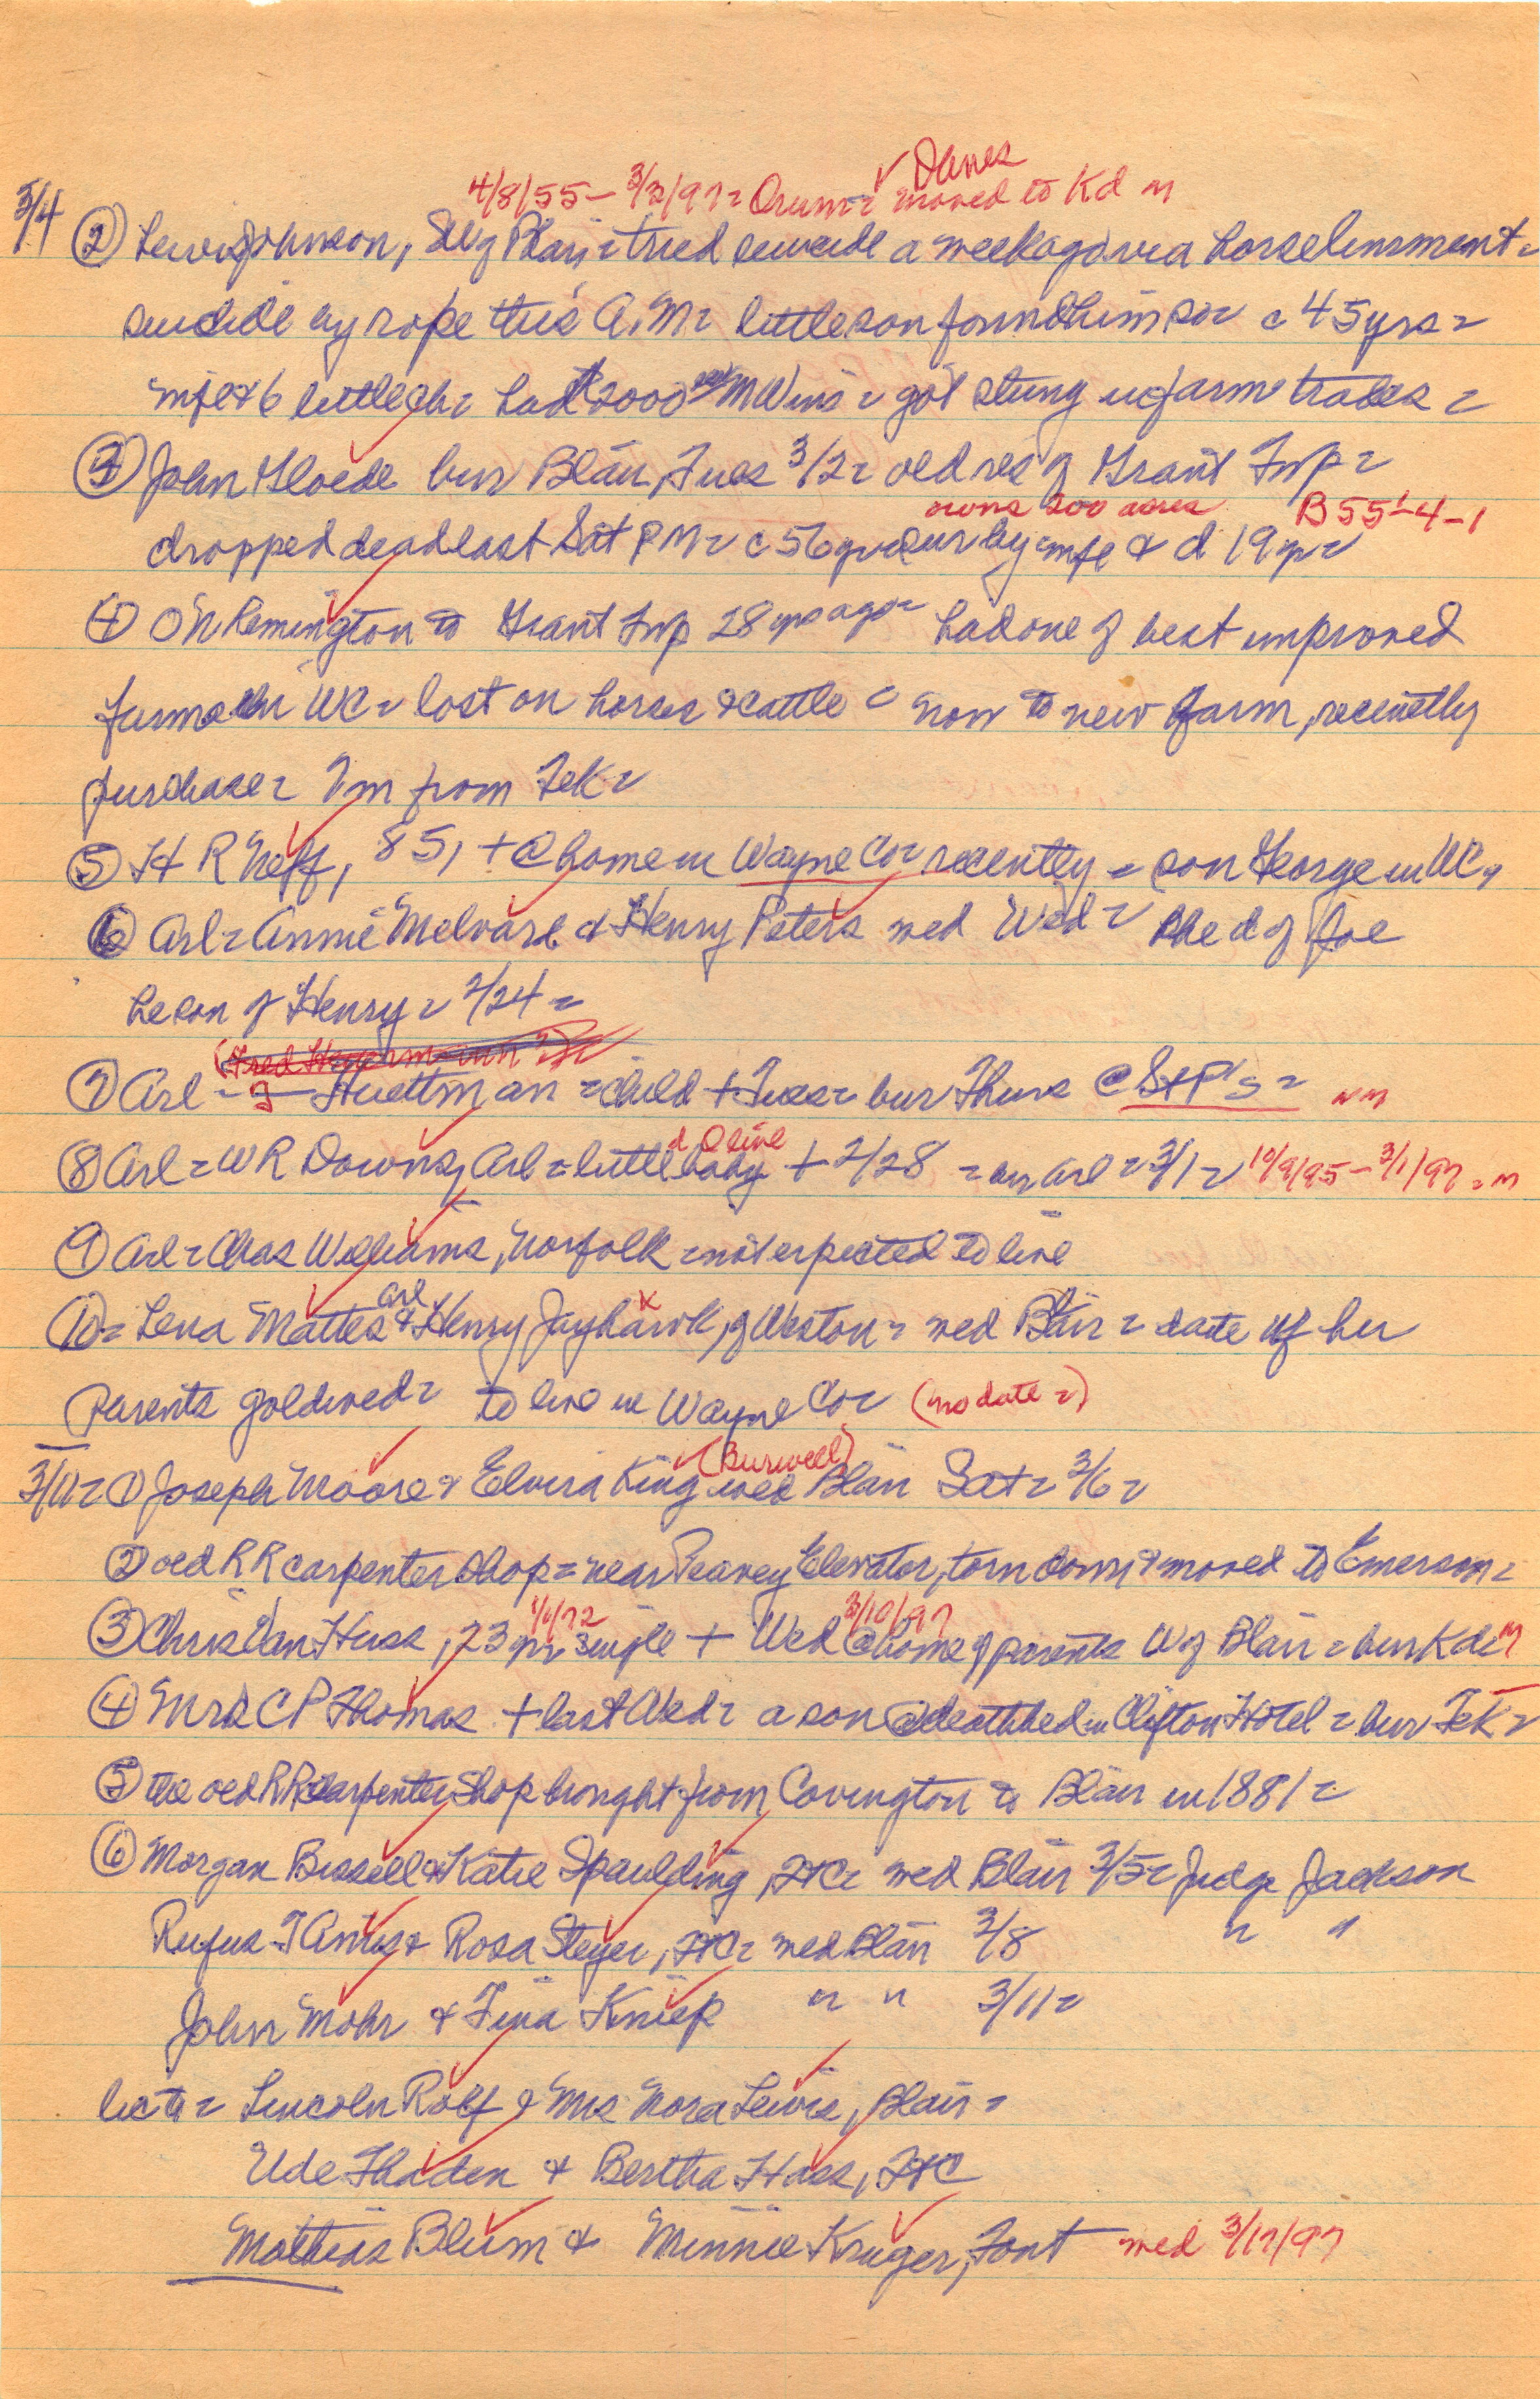 ✓ Danes
4/8/55 – 3/3/97 = Orum = moved to Kd m
3/4 ② Lewis Johnson, SW of Blair, = tried suicide a week ago via horse liniment =
suicide by rope this A.M = little son found him so = c 45 yrs =
wife & 6 little ch = had $2000 in Wis = got stung in farm trades =
③ John Gloede bur Blair, Tues 3/2 = old res of Grant Twp =
owns 200 acres B 55-4-1
dropped dead last Sat P M = c 56 yrs = sur by wife & d 19 yr =
④ O N Remington to Grant Twp 28 yrs ago = had one of best improved
farms in WC = lost on horses & cattle = now to new farm, recently
purchase = 7m from Tek =
⑤ H R Neff, 85, + @ home in Wayne Co = recently = son George in WC =
⑥ Arl = Annie Melvard & Henry Peters wed Wed = she d of Joe
he son of Henry = 2/24 =
(Fred
⑦ Arl – J – Huettman = child + Tues = bur Thurs @ St P's = nm
d Olive
⑧ Arl = W R Downs, Arl = little baby + 2/28 = bur Arl = 3/1 = 10/9/95 – 3/1/97 = m
⑨ Arl = Chas Williams, Norfolk = not expected to live
Arl
⑩ = Lena Mattes & Henry Jayhawk, of Weston = wed Blair = date of her
Parents gold wed = to live in Wayne Co = (no date =)
(Burwell)
3/11 = ① Joseph Moore & Elvira King wed Blair Sat = 3/6 =
② old R R carpenter shop = near Peavey Elevator, torn down & moved to Emerson =
1/1/72 3/10/97
③ Christian Huss, 23 yr, single + Wed @ home of parents W of Blair = bur Kd = m
④ Mrs C P Thomas + last Wed = a son @ deathbed in Clifton Hotel = bur Tek =
⑤ the old RR carpenter shop brought from Covington to Blair in 1881 =
⑥ Morgan Bissell & Katie Spaulding, FtC = wed Blair 3/5 = Judge Jackson
Rufus T & Rosa Steyer, FtC = wed Blair 3/8 " "
John Mohr & Tina Kniep " " 3/11 =
lic to = Lincoln Rolf & Mrs Nora Lewis, Blair =
Ude Thaden & Bertha Hass, FtC
Mathias Blum & Minnie Kruger, Font wed 3/17/97